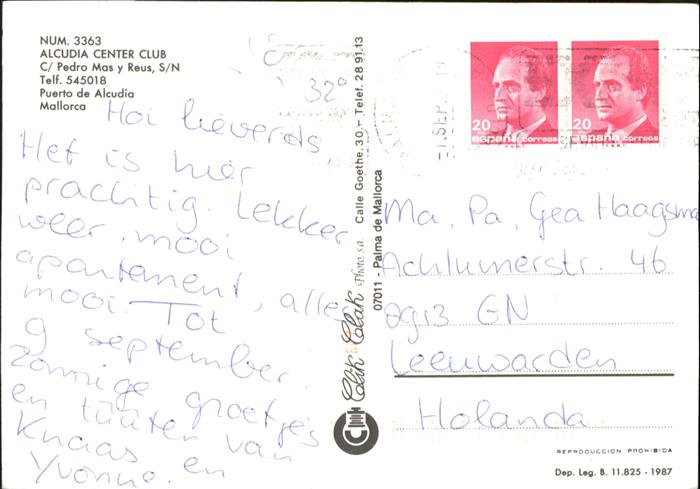 NUM. 3363
ALCUDIA CENTER CLUB
C/ Pedro Mas y Reus, S/N
Telf. 545018
Puerto de Alcudia
Mallorca
32°
Hoi lieverds,
Het is hier
prachtig. Lekker
weer, mooi
apartement, alles
mooi. Tot
9 september.
Zonnige groetjes
en tuuten van
Knaas en
Yvonne.
Clik Clak Photo, s.a. Calle Goethe, 30 - Telef. 28 91 13
07011 - Palma de Mallorca
20 españa correos
20 españa correos
SEP.
Ma, Pa, Gea Haagsma
Achlumerstr. 46
8913 GN
Leeuwarden
Holanda
REPRODUCCION PROHIBIDA
Dep. Leg. B. 11.825 - 1987